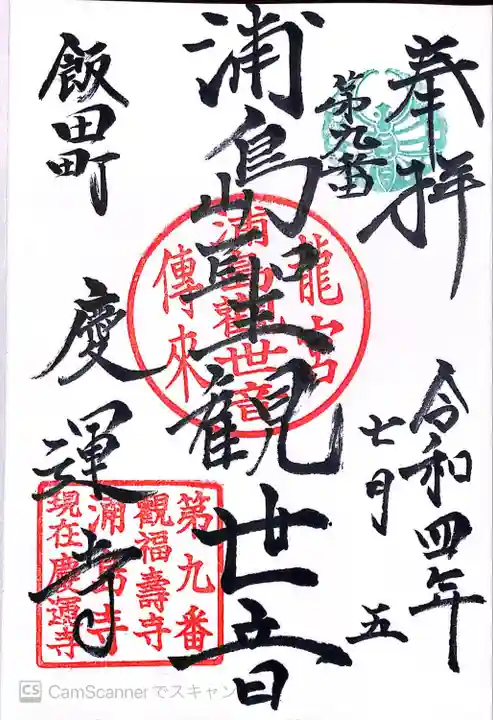 奉拝
第九番
令和四年
七月五
浦島聖観世音
飯田町
慶運寺
龍宮
浦島觀世音
傳來
第九番
觀福壽寺
浦島寺
現在慶運寺
CS CamScanner でスキャン